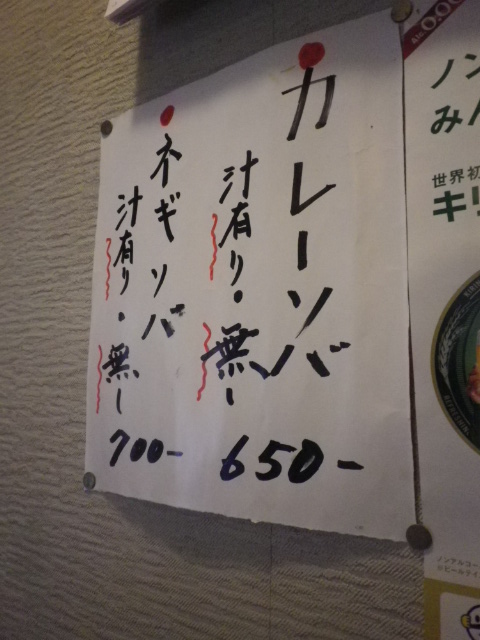 カレーソバ
汁有り・無し
650-
ネギソバ
汁有り・無し
700-
ノン
み
世界初
キリ
0.00
ノンアルコー